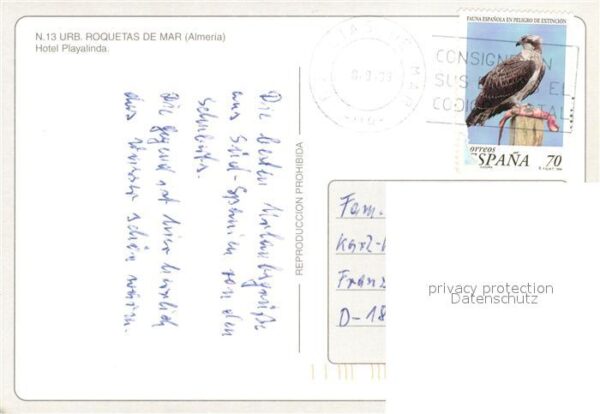 N.13 URB. ROQUETAS DE MAR (Almeria)
Hotel Playalinda.
Die besten Urlaubsgrüße
aus Süd-Spanien von den
Schuberts.
Die Gegend ist hier herrlich
das Wasser schön warm.
REPRODUCCION PROHIBIDA
DE MAR
CONSIGNE EN
SUS EL
CODIGO POSTAL
FAUNA ESPAÑOLA EN PELIGRO DE EXTINCIÓN
correos
ESPAÑA 70
Fam.
Karl-
Franz
D-18
privacy protection
Datenschutz